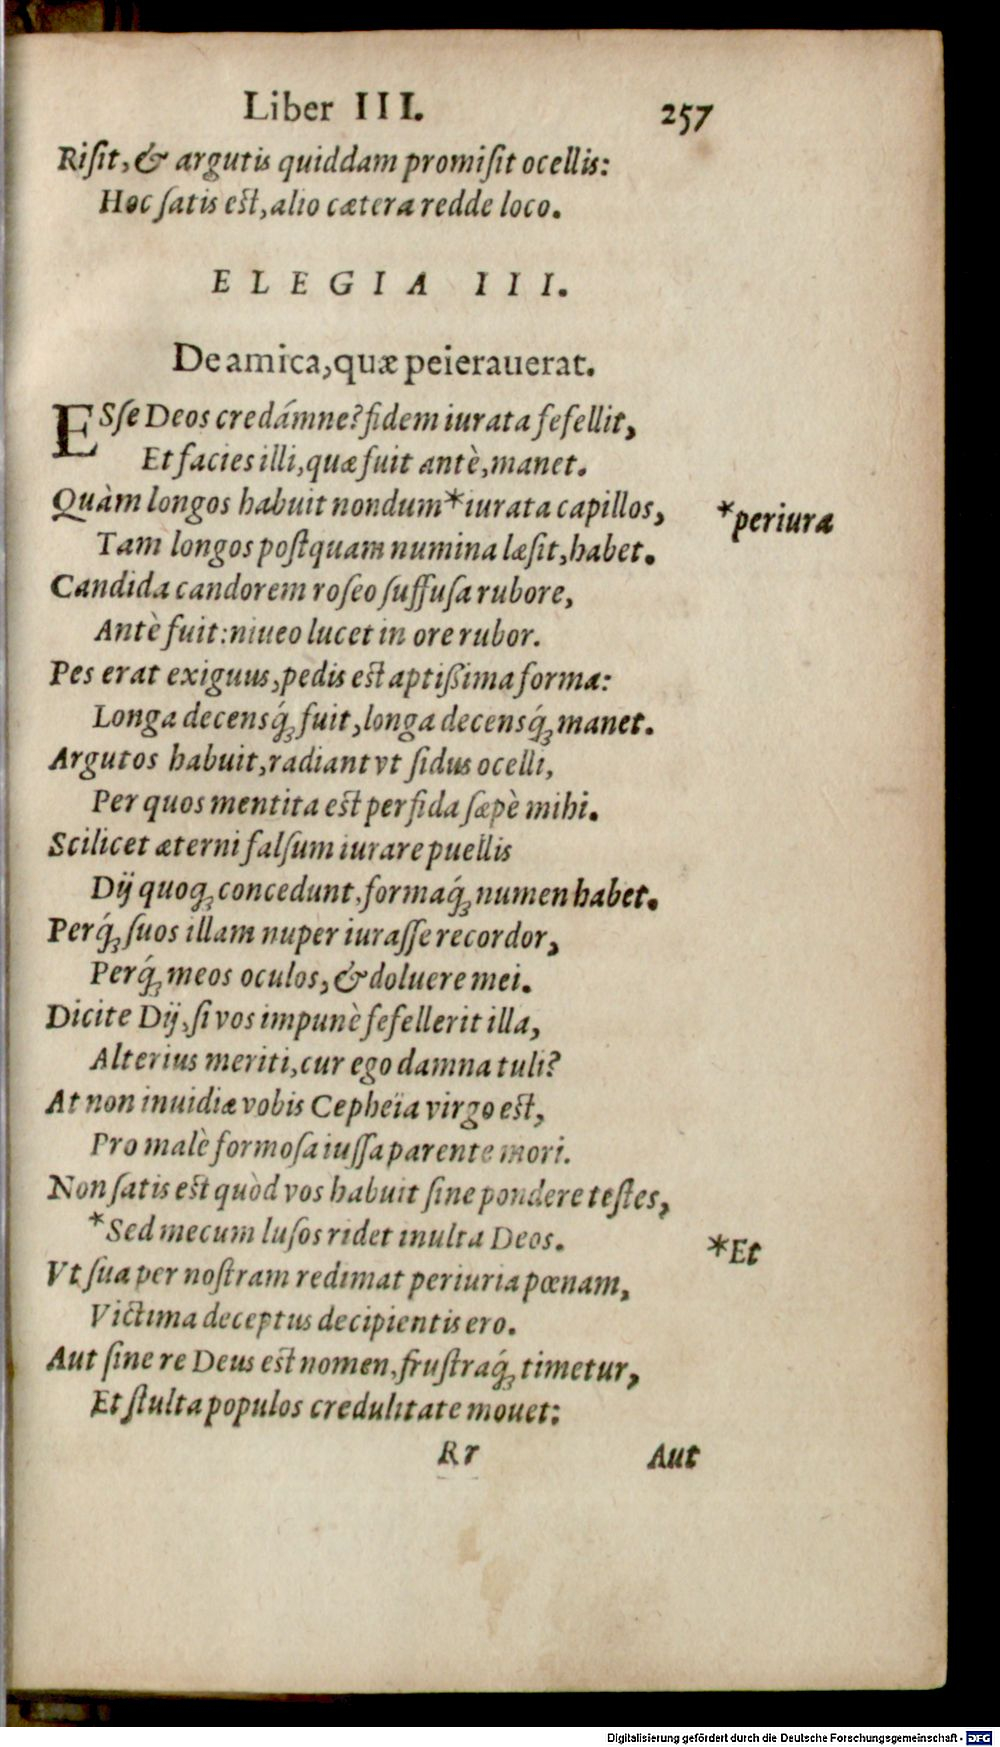 Liber III. 257
Riſit, & argutis quiddam promiſit ocellis:
Hoc ſatis est, alio cætera redde loco.
ELEGIA III.
De amica, quæ peierauerat.
ESſe Deos credámne? fidem iurata fefellit,
Et facies illi, quæ fuit antè, manet.
Quàm longos habuit nondum *iurata capillos, *periura
Tam longos poſtquam numina læſit, habet.
Candida candorem roſeo ſuffuſa rubore,
Antè fuit: niueo lucet in ore rubor.
Pes erat exiguus, pedis est aptißima forma:
Longa decensq́; fuit, longa decensq́; manet.
Argutos habuit, radiant vt ſidus ocelli,
Per quos mentita est perfida ſæpè mihi.
Scilicet æterni falſum iurare puellis
Dij quoq; concedunt, formaq́; numen habet.
Perq́; ſuos illam nuper iuraſſe recordor,
Perq́; meos oculos, & doluere mei.
Dicite Dij, ſi vos impunè fefellerit illa,
Alterius meriti, cur ego damna tuli?
At non inuidiæ vobis Cepheïa virgo est,
Pro malè formoſa iuſſa parente mori.
Non ſatis est quòd vos habuit ſine pondere teſtes,
*Sed mecum luſos ridet inulta Deos. *Et
Vt ſua per noſtram redimat periuria pœnam,
Victima deceptus decipientis ero.
Aut ſine re Deus est nomen, fruſtraq́; timetur,
Et ſtulta populos credulitate mouet:
Rr Aut
Digitalisierung gefördert durch die Deutsche Forschungsgemeinschaft - DFG